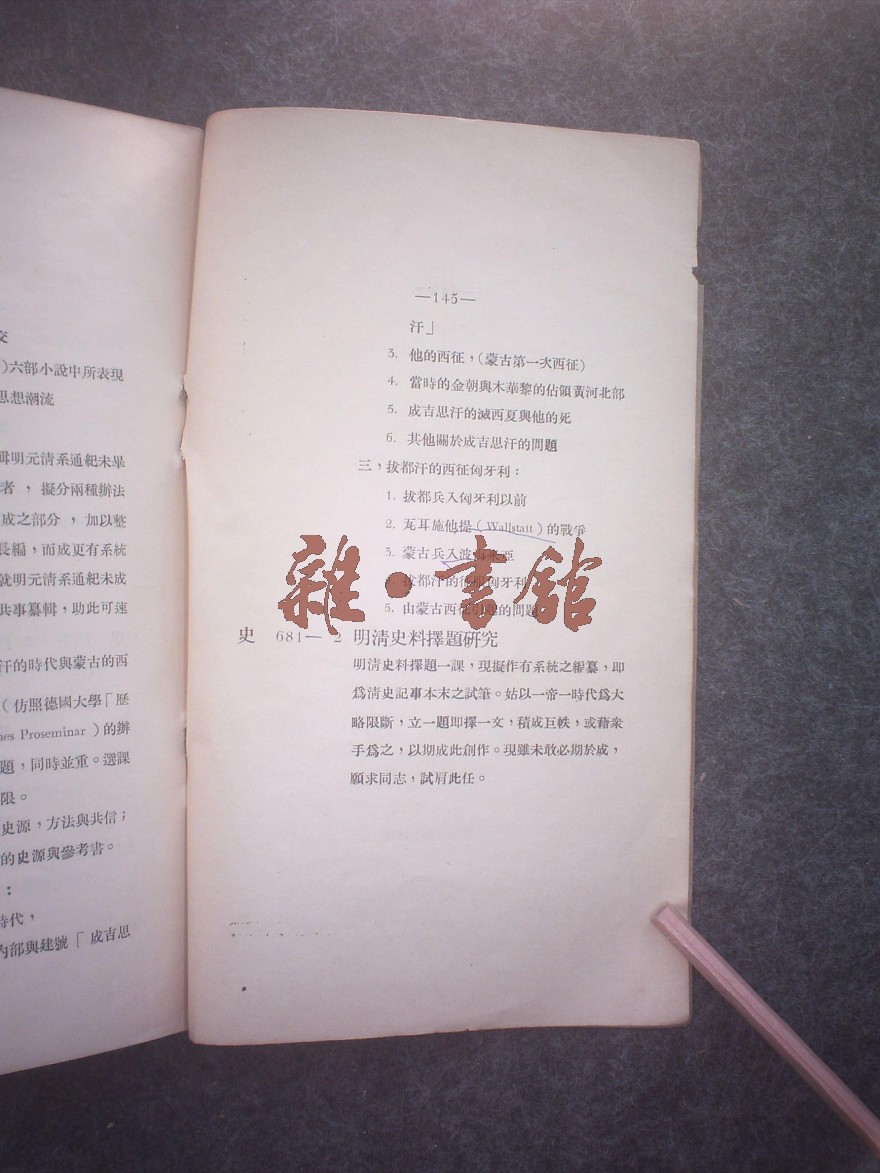 交
)六部小說中所表現
思想潮流
輯明元淸系通紀未畢
者，擬分兩種辦法
成之部分，加以整
長編，而成更有系統
就明元淸系通紀未成
共事纂輯，助此可速
汗的時代與蒙古的西
(仿照德國大學「歷
nes Proseminar)的辦
題，同時並重。選課
限。
史源，方法與共信；
的史源與參考書。
：
時代，
內部與建號「成吉思
—145—
汗」
3. 他的西征，(蒙古第一次西征)
4. 當時的金朝與木華黎的佔領黃河北部
5. 成吉思汗的滅西夏與他的死
6. 其他關於成吉思汗的問題
三，拔都汗的西征匈牙利：
1. 拔都兵入匈牙利以前
2. 瓦耳施他提(Wallstatt)的戰爭
3. 蒙古兵入波 亞
拔都汗的 匈牙利
5. 由蒙古西征 的問題
雜·書館
史 681—2 明淸史料擇題研究
明淸史料擇題一課，現擬作有系統之編纂，卽
爲淸史記事本末之試筆。姑以一帝一時代爲大
略限斷，立一題卽擇一文，積成巨帙，或藉衆
手爲之，以期成此創作。現雖未敢必期於成，
願求同志，試肩此任。